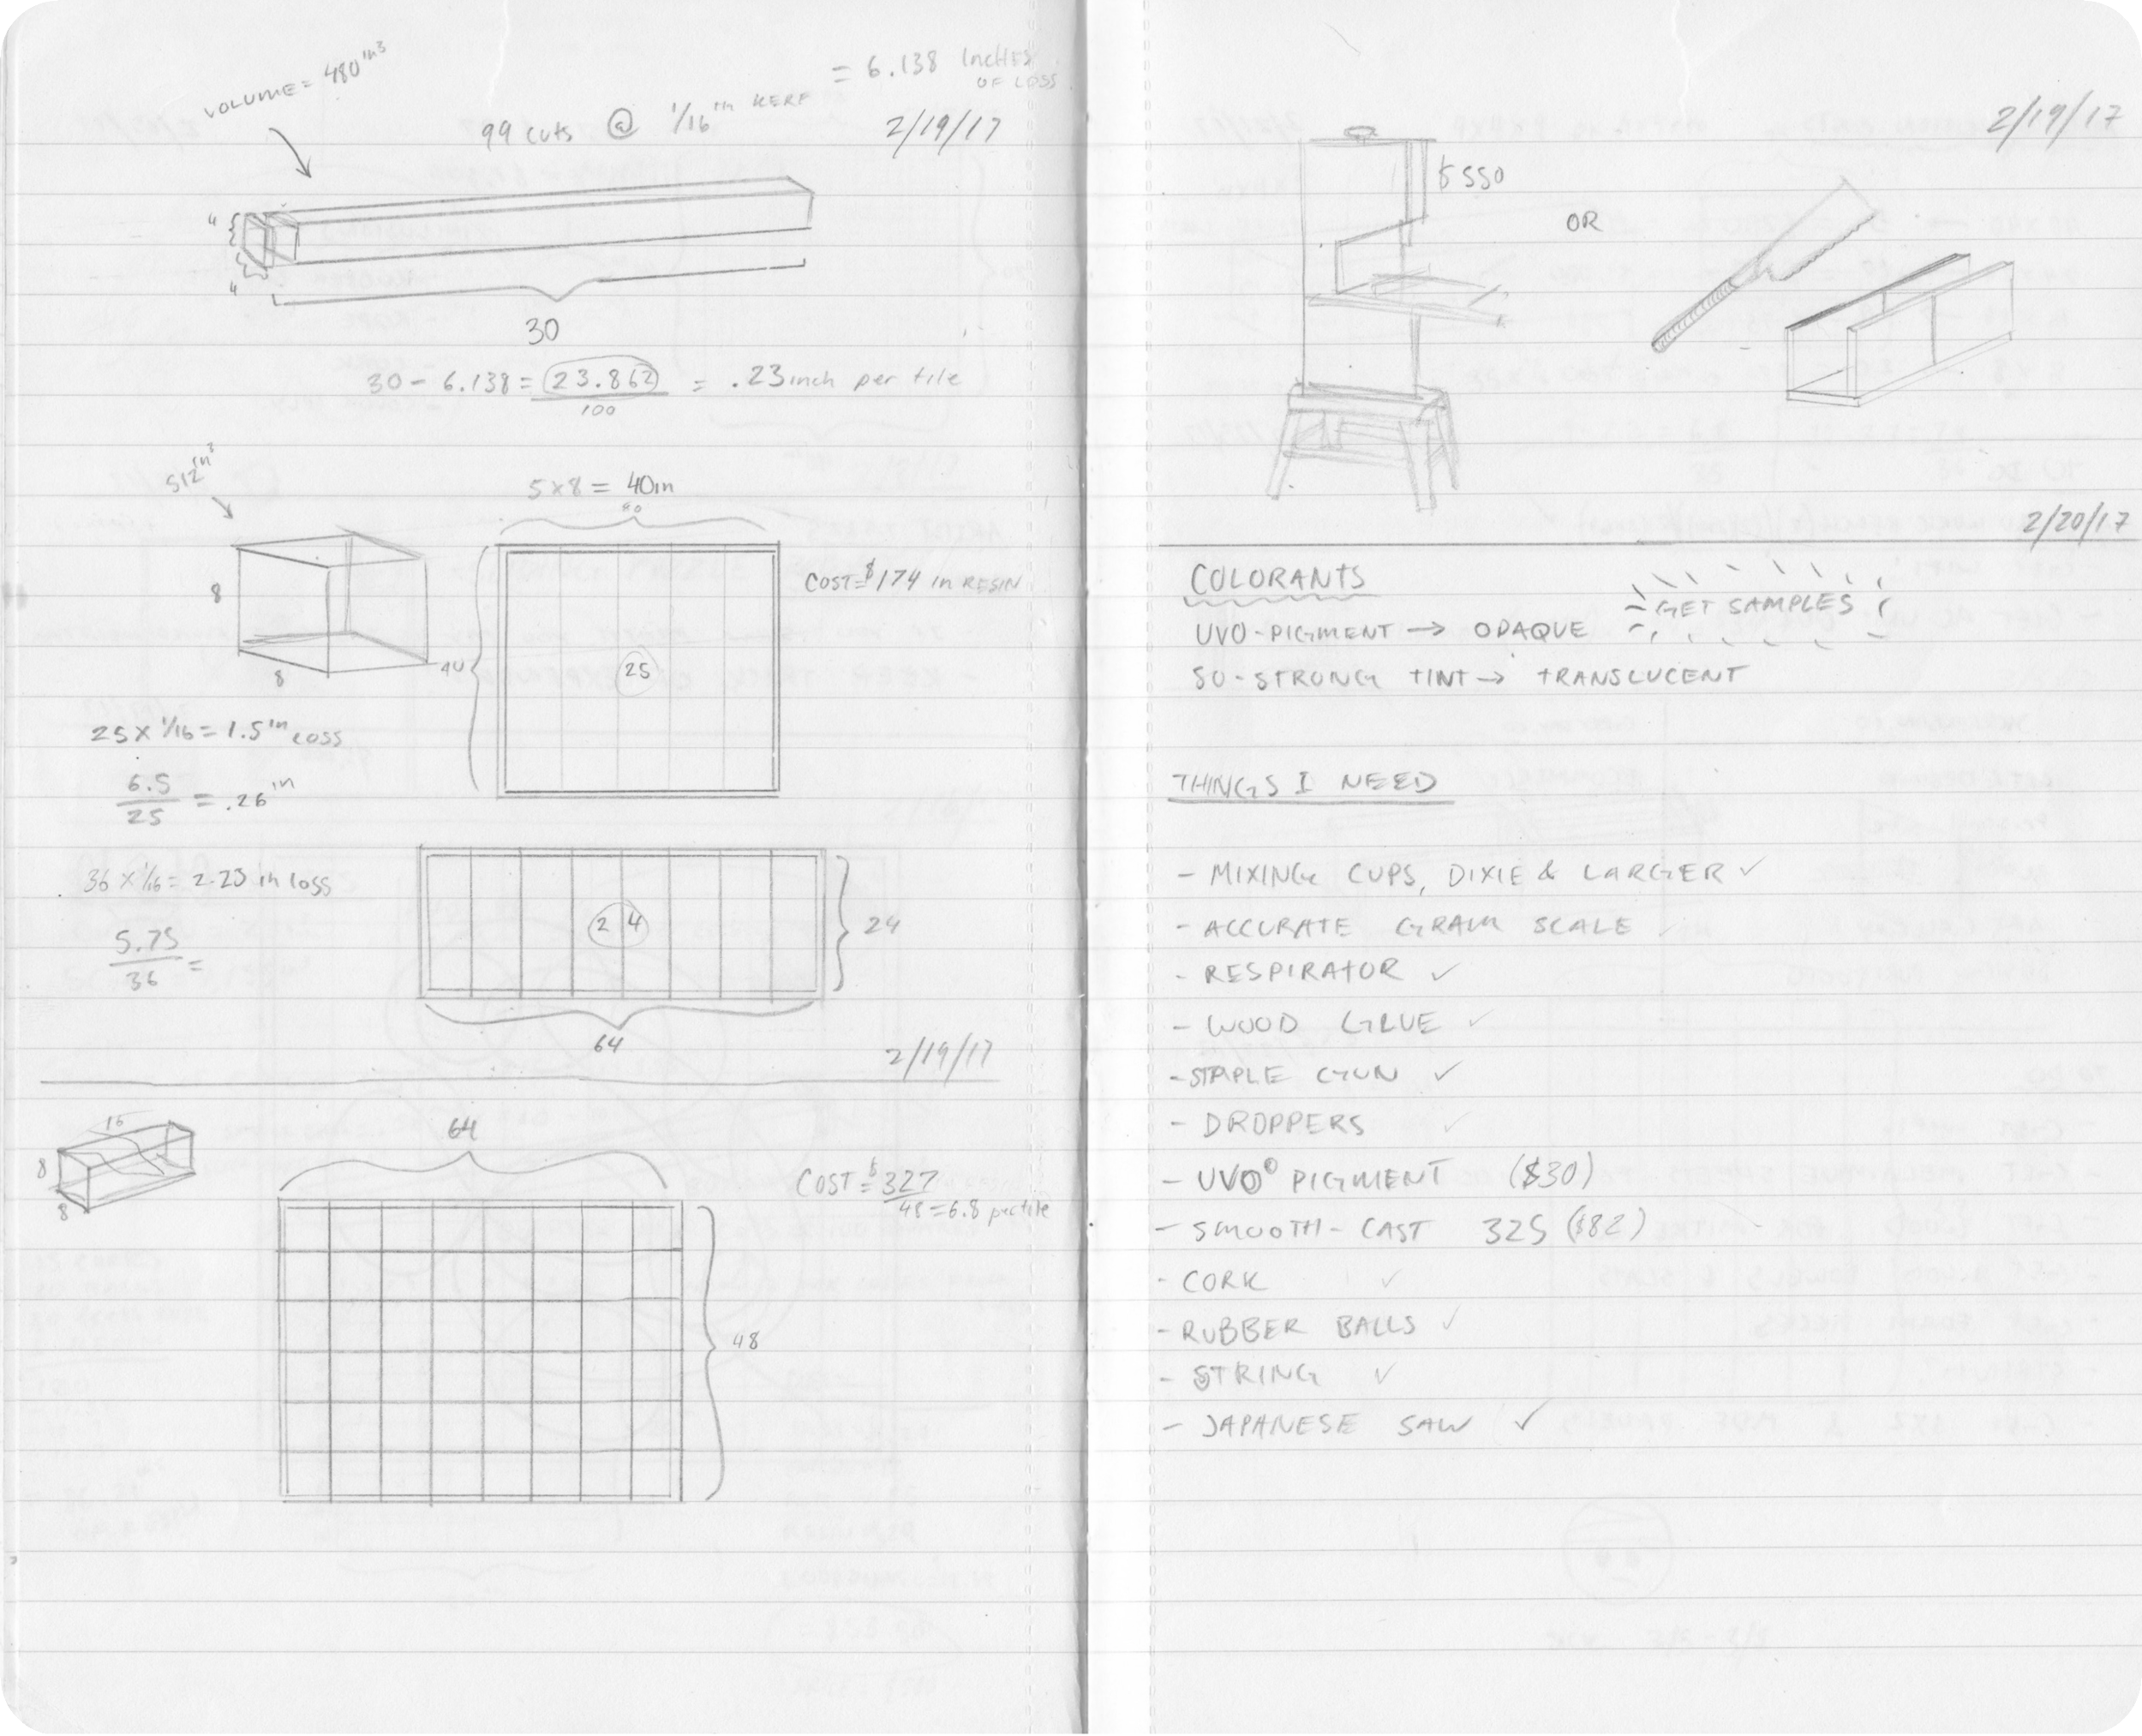 VOLUME = 480 in³
= 6.138 INCHES
OF LOSS
99 CUTS @ 1/16 in KERF
2/19/17
4
4
30
30 - 6.138 = 23.862 = .23 inch per tile
100
512 in³
8
8
5 x 8 = 40in
40
40
25
COST = $174 in RESIN
25 x 1/16 = 1.5 in LOSS
6.5
25
= .26 in
36 x 1/16 = 2.25 in loss
5.75
36
=
24
24
64
2/19/17
16
8
8
64
48
COST = $327
48 = 6.8 per tile
2/19/17
$550
OR
2/20/17
COLORANTS
GET SAMPLES
UVO-PIGMENT → OPAQUE
SO-STRONG TINT → TRANSLUCENT
THINGS I NEED
- MIXING CUPS, DIXIE & LARGER ✓
- ACCURATE GRAM SCALE ✓
- RESPIRATOR ✓
- WOOD GLUE ✓
- STAPLE GUN ✓
- DROPPERS ✓
- UVO PIGMENT ($30)
- SMOOTH-CAST 325 ($82)
- CORK ✓
- RUBBER BALLS ✓
- STRING ✓
- JAPANESE SAW ✓